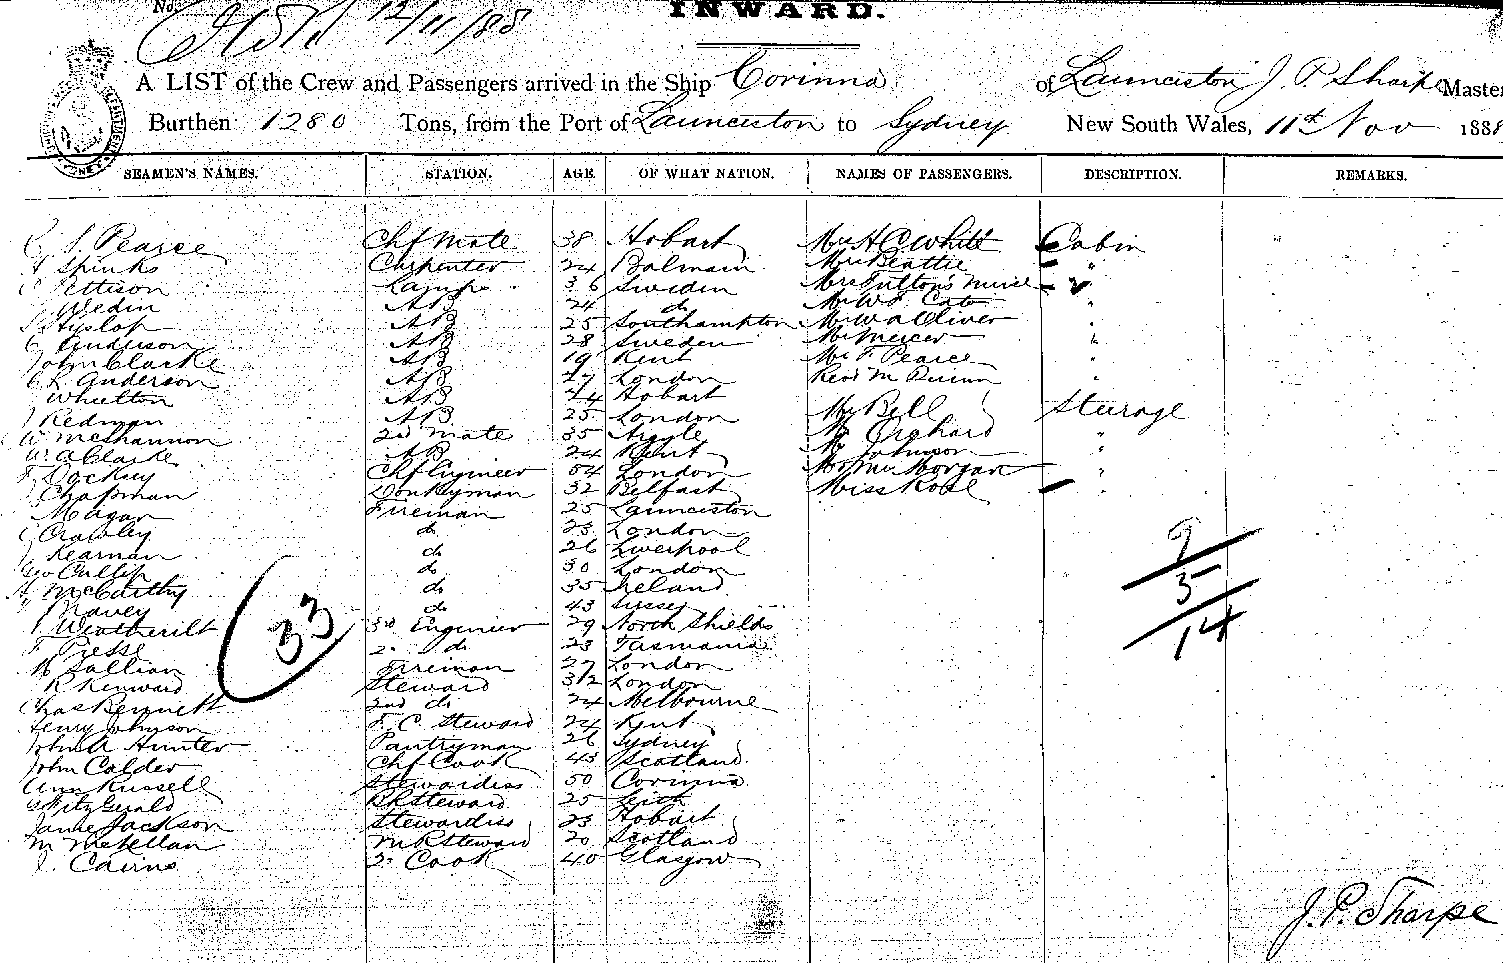 No. 12/11/88
INWARD.
A LIST of the Crew and Passengers arrived in the Ship Corinna of Launceston J. P. Sharpe Master
Burthen 1280 Tons, from the Port of Launceston to Sydney New South Wales, 11th Nov 1888
SEAMEN'S NAMES. STATION. AGE. OF WHAT NATION. NAMES OF PASSENGERS. DESCRIPTION. REMARKS.
S. Pearce Chf Mate 38 Hobart Mrs H C White Cabin
Spinks Carpenter 24 Balmain Mrs Beattie "
Pettison Lamps 36 Sweden Mrs Fulton's nurse "
Wedin AB 24 do Mr W Cato "
Hyslop AB 25 Southampton Mr W A Oliver "
Anderson AB 28 Sweden Mr Mercer "
John Clarke AB 19 Kent Mr F Pearce "
C L Anderson AB 47 London Revd M Quinn "
Wheelton AB 44 Hobart
J Redman AB 25 London Mr Bell Steerage
W McShannon 2nd Mate 35 Argyle Mr Orchard "
W. A Clarke AB 24 Kent Mr Johnson "
Chf Engineer 54 London Mr Morgan "
Chapman Donkeyman 32 Belfast Miss Rose "
Meagar Fireman 25 Launceston
Crawley do 23 London
J Kearnan do 26 Liverpool
Geo Cullip do 30 London
McCarthy do 35 Ireland
Mavey do 43 Sussex
Weatherilt 3rd Engineer 29 North Shields
Presse 2nd do 23 Tasmania
Sullivan Fireman 27 London
R Kenward Steward 32 London
Chas Bennett 2nd do 24 Melbourne
Henry Johnson F. C. Steward 24 Kent
John A Hunter Pantryman 26 Sydney
John Calder Chf Cook 43 Scotland
Ann Russell Stewardess 50 Corinna
G FitzGerald BR Steward 25 Leith
Jane Jackson Stewardess 23 Hobart
M McKellan MR Steward 20 Scotland
J. Cairns 2nd Cook 40 Glasgow
33
9
5
14
J. P. Sharpe